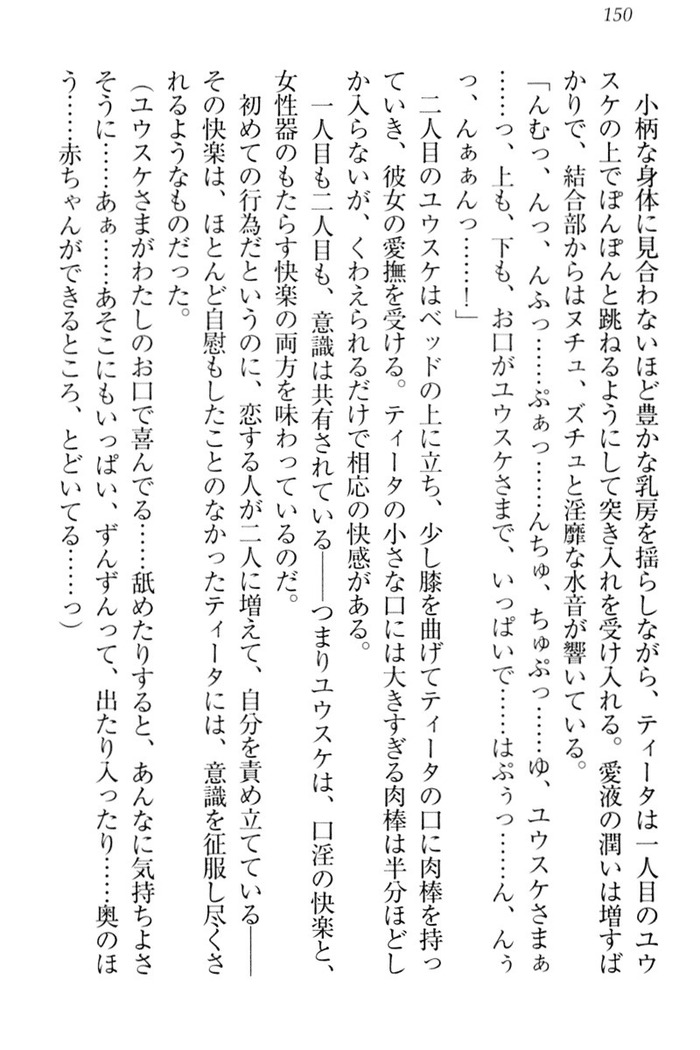 150
小柄な身体に見合わないほど豊かな乳房を揺らしながら、ティータは一人目のユウ
スケの上でぽんぽんと跳ねるようにして突き入れを受け入れる。愛液の潤いは増すば
かりで、結合部からはヌチュ、ズチュと淫靡な水音が響いている。
「んむっ、んっ、んふっ……ぷぁっ……んちゅ、ちゅぷっ……ゆ、ユウスケさまぁ
……っ、上も、下も、お口がユウスケさまで、いっぱいで……はぷぅっ……ん、んぅ
っ、んぁぁんっ……！」
二人目のユウスケはベッドの上に立ち、少し膝を曲げてティータの口に肉棒を持っ
ていき、彼女の愛撫を受ける。ティータの小さな口には大きすぎる肉棒は半分ほどし
か入らないが、くわえられるだけで相応の快感がある。
一人目も二人目も、意識は共有されている――つまりユウスケは、口淫の快楽と、
女性器のもたらす快楽の両方を味わっているのだ。
初めての行為だというのに、恋する人が二人に増えて、自分を責め立てている――
その快楽は、ほとんど自慰もしたことのなかったティータには、意識を征服し尽くさ
れるようなものだった。
（ユウスケさまがわたしのお口で喜んでる……舐めたりすると、あんなに気持ちよさ
そうに……あぁ……あそこにもいっぱい、ずんずんって、出たり入ったり……奥のほ
う……赤ちゃんができるところ、とどいてる……っ）